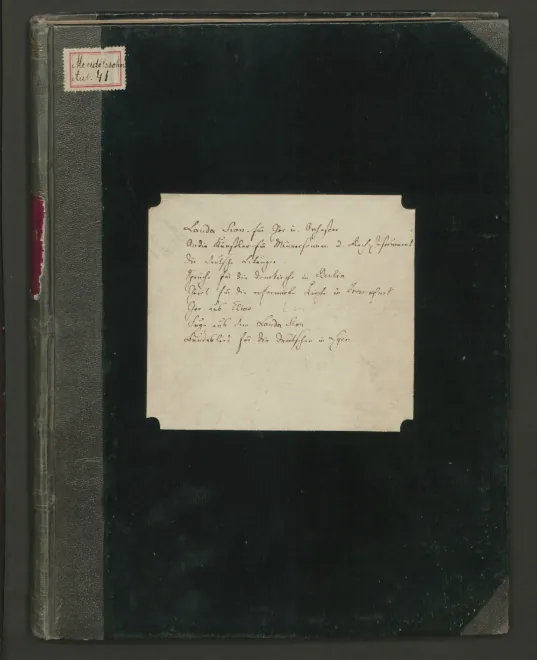 Mendelssohn
Aut. 41
Lauda Sion für Chor u. Orchester
An die Künstler für Männerstimmen u.
die deutsche Liturgie
Sprüche für die Domkirche in Berlin
für die reformirte Kirche in Frankfurt
Chor aus Elias
Fuge aus dem Lauda Sion
für die Deutschen in Lyon